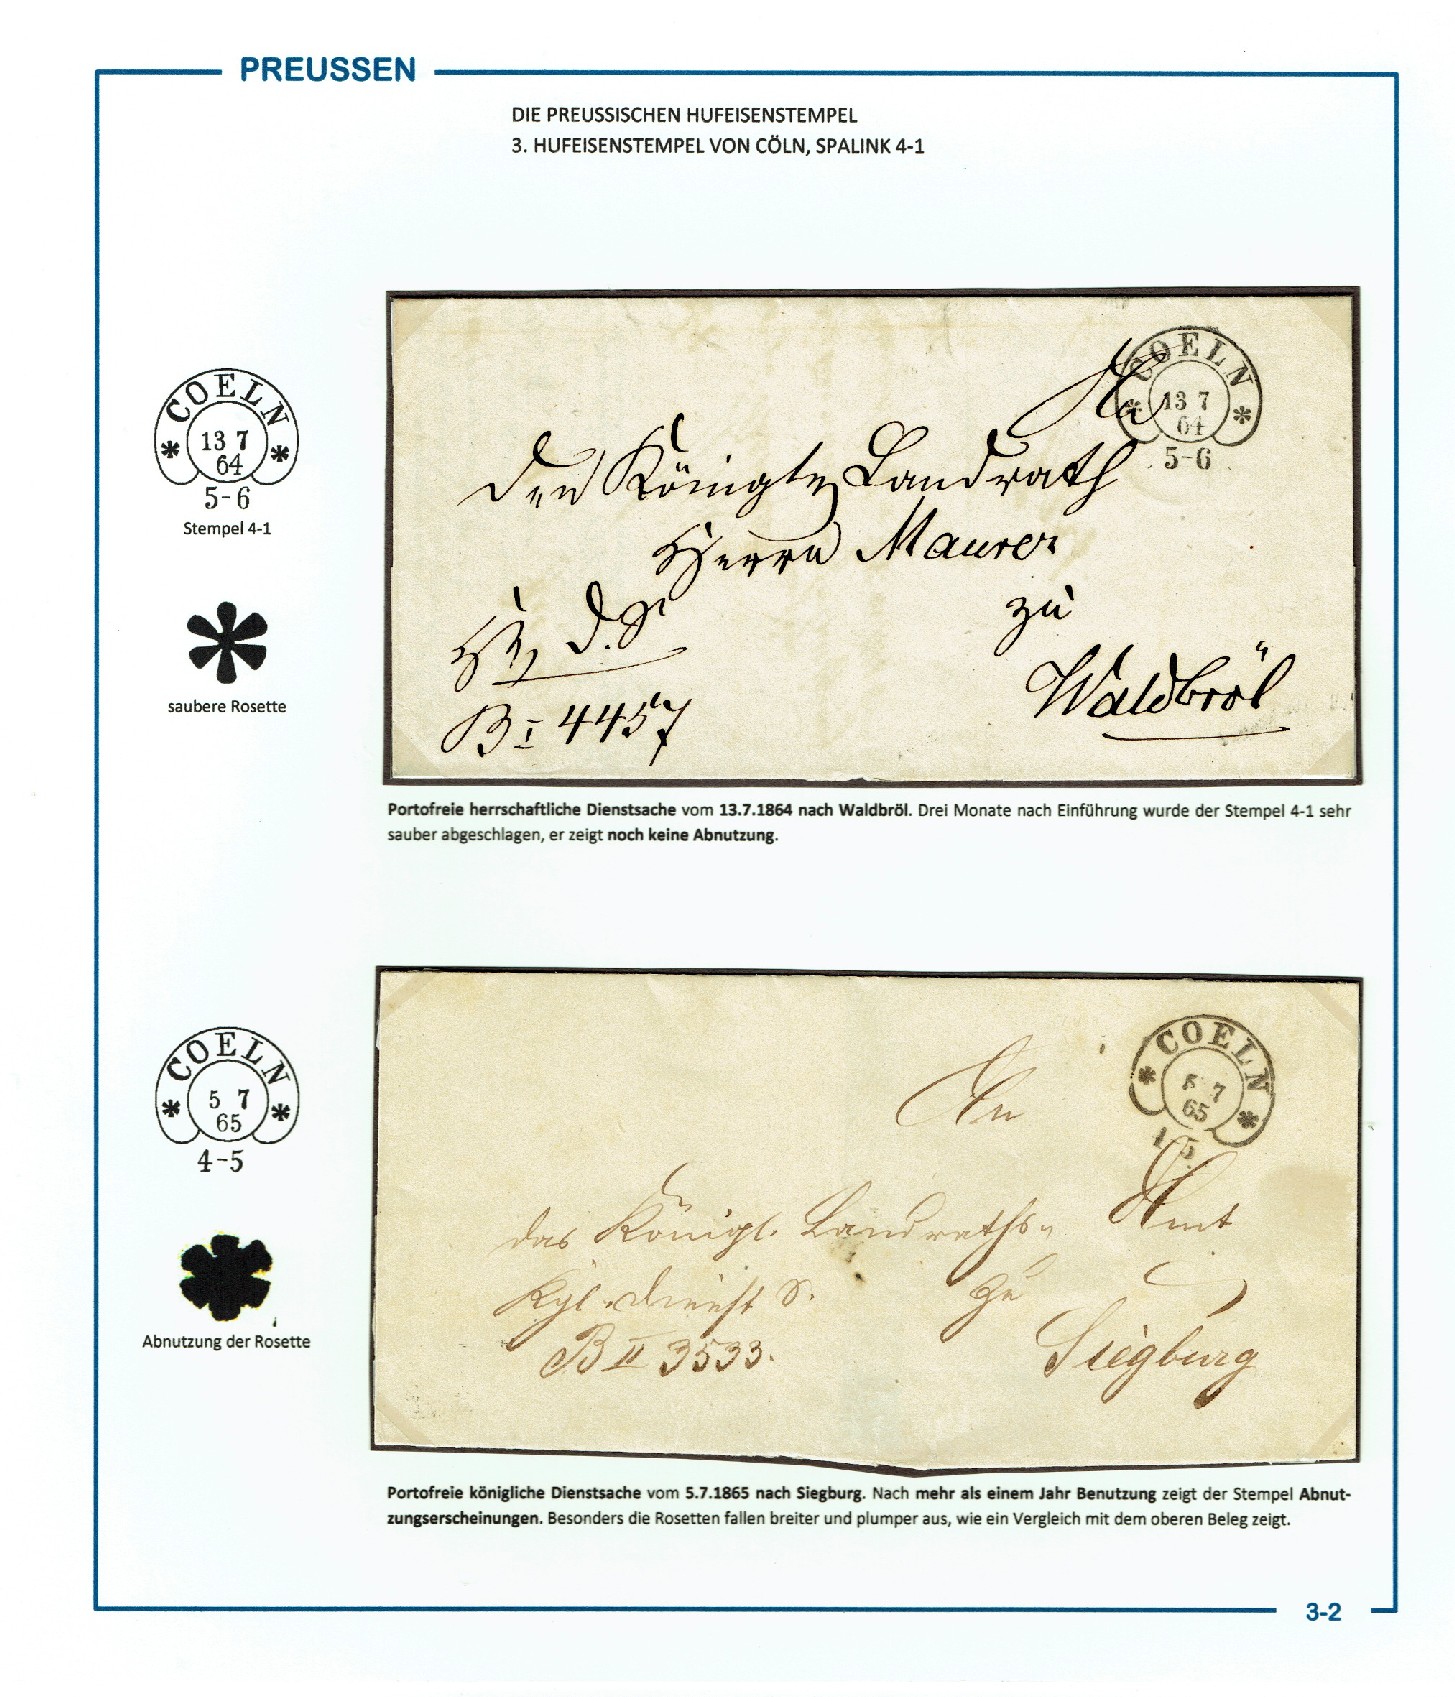 PREUSSEN
DIE PREUSSISCHEN HUFEISENSTEMPEL
3. HUFEISENSTEMPEL VON CÖLN, SPALINK 4-1
COELN
13 7
64
5-6
Stempel 4-1
saubere Rosette
COELN
13 7
64
5-6
An
den Königln Landrath
Herrn Maurer
zu
Waldbröl
d. S.
B I 4457
Portofreie herrschaftliche Dienstsache vom 13.7.1864 nach Waldbröl. Drei Monate nach Einführung wurde der Stempel 4-1 sehr
sauber abgeschlagen, er zeigt noch keine Abnutzung.
COELN
5 7
65
4-5
Abnutzung der Rosette
COELN
5 7
65
4-5
An
das Königl. Landraths- Amt
zu
Siegburg
Kgl. Dienst S.
B II 3533.
Portofreie königliche Dienstsache vom 5.7.1865 nach Siegburg. Nach mehr als einem Jahr Benutzung zeigt der Stempel Abnut-
zungserscheinungen. Besonders die Rosetten fallen breiter und plumper aus, wie ein Vergleich mit dem oberen Beleg zeigt.
3-2